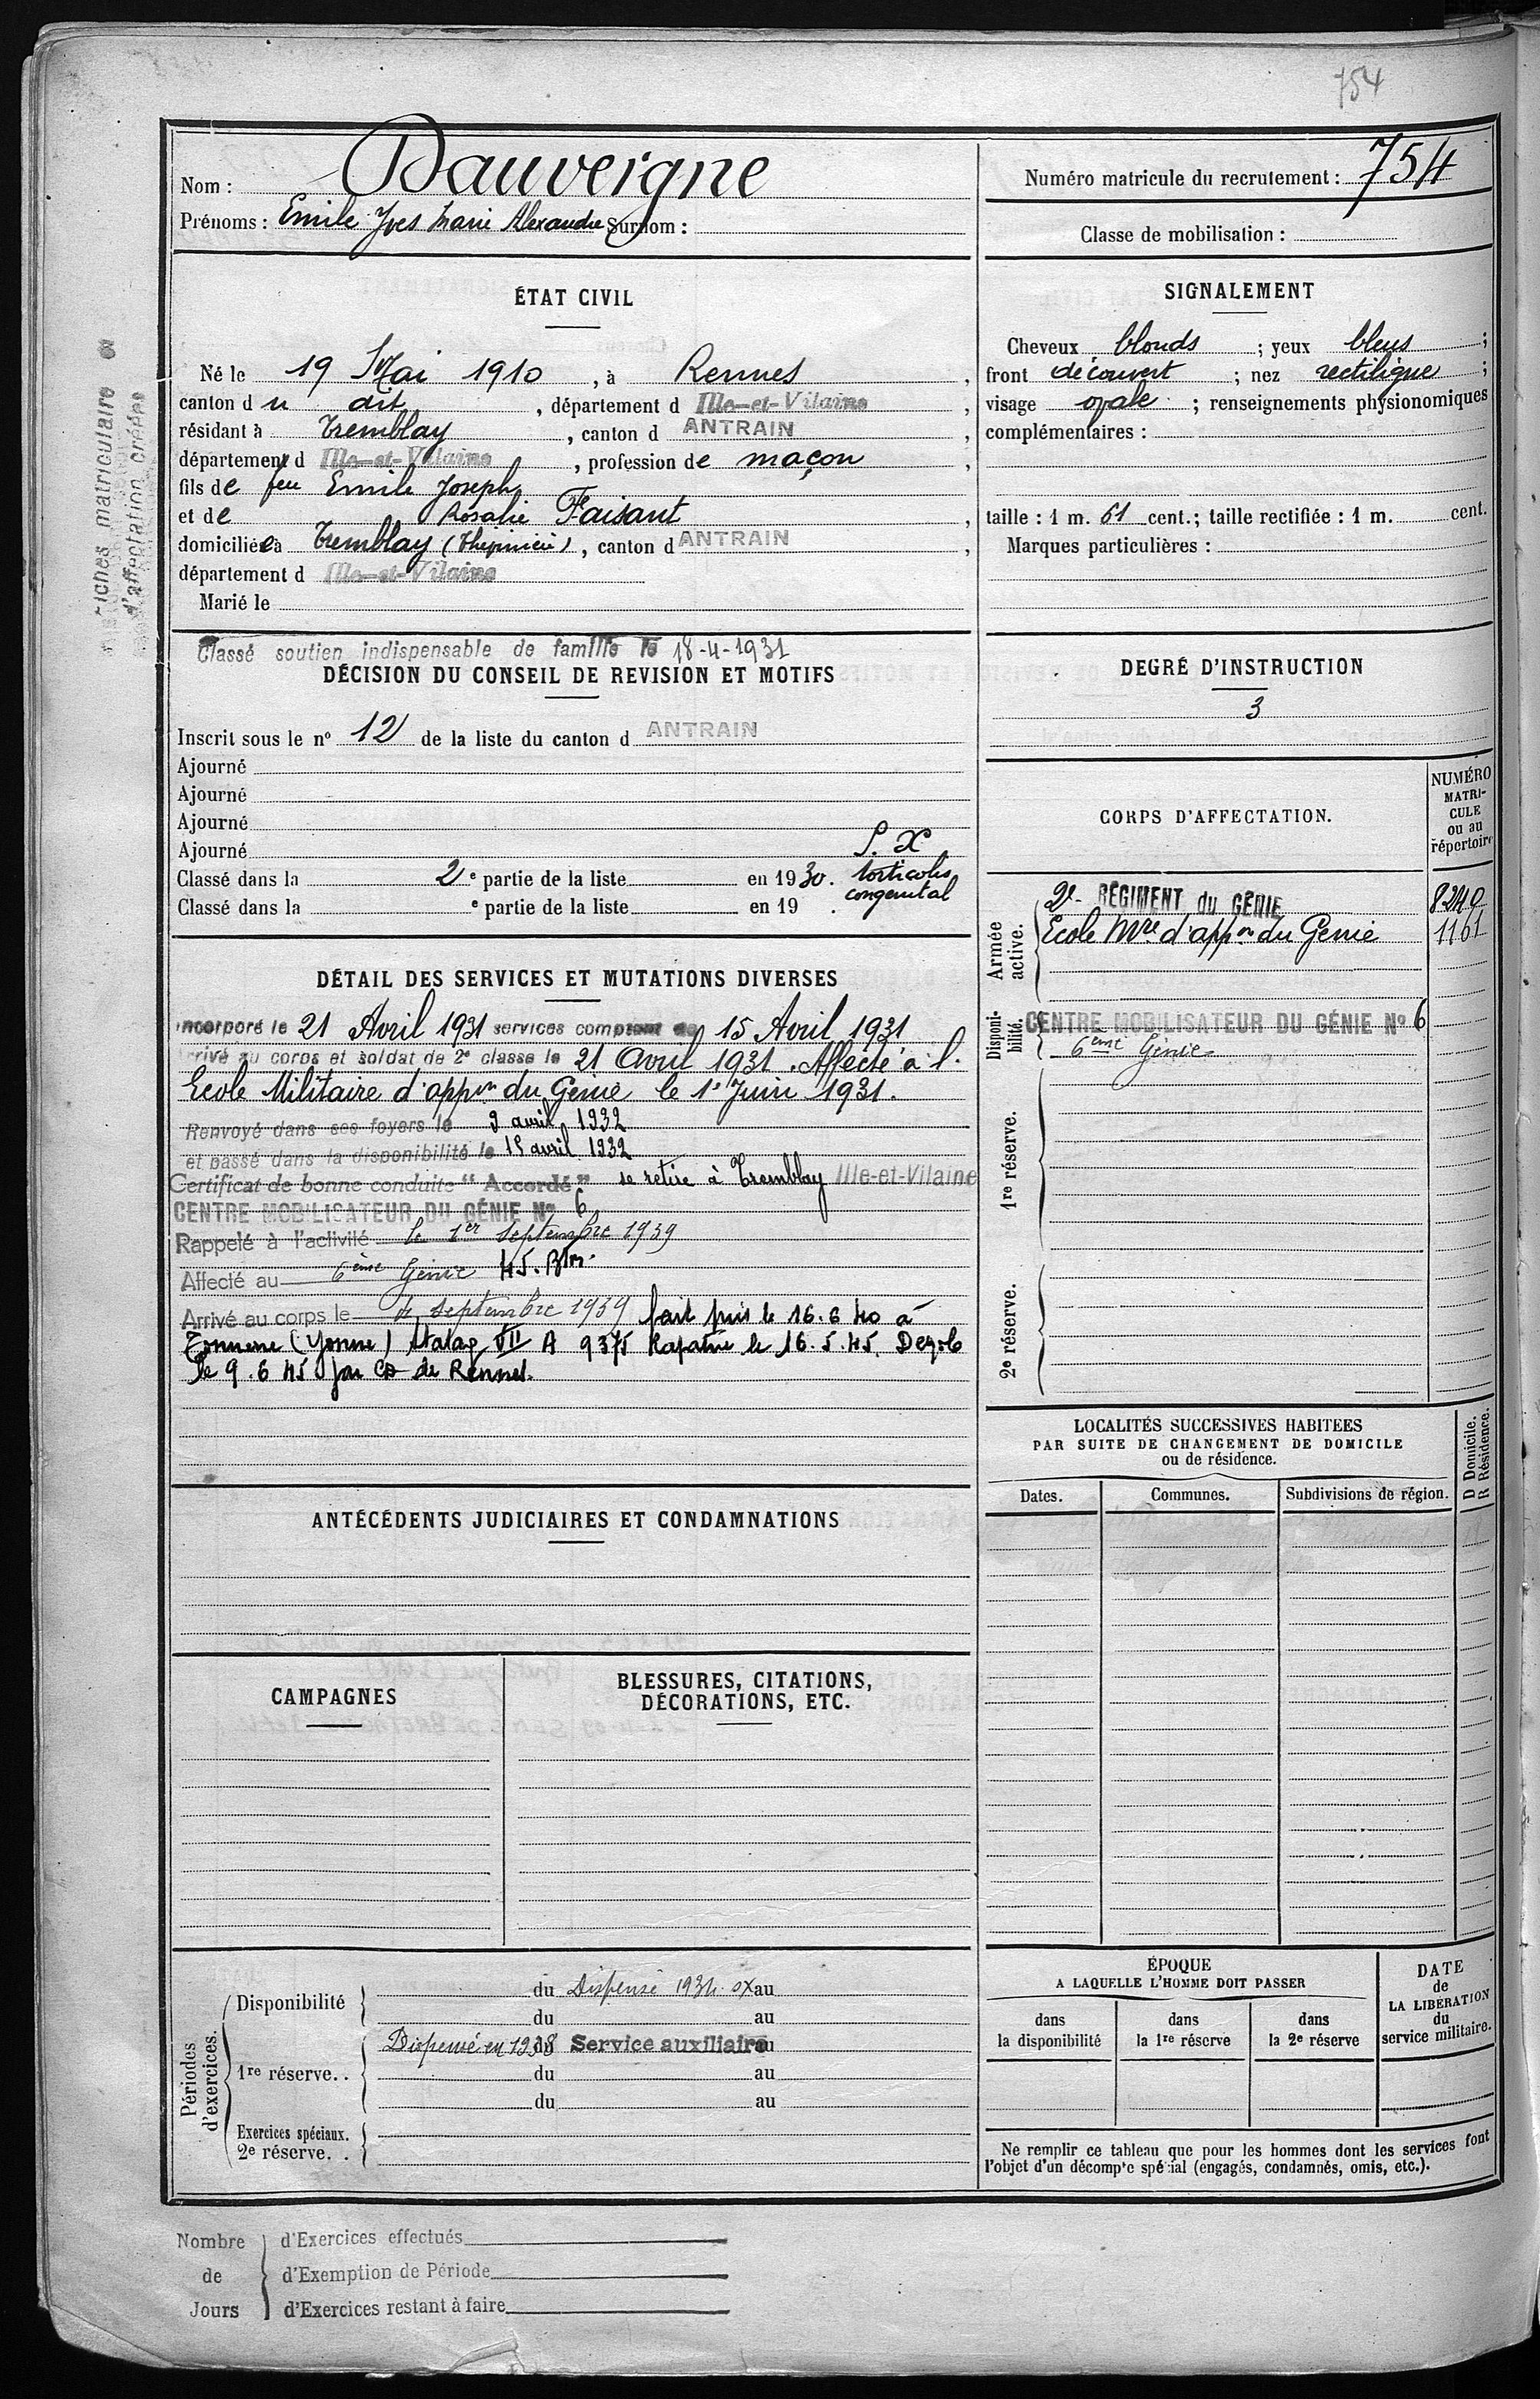 754
Nom : Dauvergne
Prénoms : Emile Yves Marie Alexandre Surnom :
Numéro matricule du recrutement : 754
Classe de mobilisation :
Fiches matriculaire et
d'affectation créées
ÉTAT CIVIL
Né le 19 Mai 1910, à Rennes,
canton du dit, département d Ille-et-Vilaine,
résidant à Tremblay, canton d ANTRAIN,
département d Ille-et-Vilaine, profession de maçon,
fils de feu Emile Joseph
et de Rosalie Faisant,
domiciliée à Tremblay, canton d ANTRAIN,
département d Ille-et-Vilaine
Marié le
SIGNALEMENT
Cheveux blonds ; yeux bleus ;
front découvert ; nez rectiligne ;
visage ovale ; renseignements physionomiques
complémentaires :
taille : 1 m. 61 cent.; taille rectifiée : 1 m. cent.
Marques particulières :
Classé soutien indispensable de famille le 18-4-1931
DÉCISION DU CONSEIL DE REVISION ET MOTIFS
Inscrit sous le nº 12 de la liste du canton d ANTRAIN
Ajourné
Ajourné
Ajourné
Ajourné
S. X
Classé dans la 2e partie de la liste en 1930. torticolis
congenital
Classé dans la e partie de la liste en 19 .
DEGRÉ D'INSTRUCTION
3
DÉTAIL DES SERVICES ET MUTATIONS DIVERSES
Incorporé le 21 Avril 1931 services comptant du 15 Avril 1931
Arrivé au corps et soldat de 2e classe le 21 Avril 1931. Affecté à l'
Ecole Militaire d'appon du Génie le 1er Juin 1931.
Renvoyé dans ses foyers le 9 avril 1932
et passé dans la disponibilité le 15 avril 1932
Certificat de bonne conduite "Accordé" se retire à Tremblay Ille-et-Vilaine
CENTRE MOBILISATEUR DU GÉNIE No 6
Rappelé à l'activité le 1er septembre 1939
Affecté au 6ème Génie 45. Btn.
Arrivé au corps le 4 septembre 1939 fait pris le 16.6 40 à
Tonnerre (Yonne) Stalag VII A 9375 Rapatrié le 16.5.45. Demob
le 9.6 45 par CD de Rennes.
CORPS D'AFFECTATION.
NUMÉRO
MATRI-
CULE
ou au
répertoire
Armée
active.
2e RÉGIMENT du GÉNIE 8240
Ecole Mre d'appon du Génie 1161
Disponi-
bilité.
CENTRE MOBILISATEUR DU GÉNIE No 6
6ème Génie
1re réserve.
2e réserve.
LOCALITÉS SUCCESSIVES HABITEES
PAR SUITE DE CHANGEMENT DE DOMICILE
ou de résidence.
D Domicile.
R Résidence.
Dates.
Communes.
Subdivisions de région.
ANTÉCÉDENTS JUDICIAIRES ET CONDAMNATIONS
CAMPAGNES
BLESSURES, CITATIONS,
DÉCORATIONS, ETC.
Périodes
d'exercices.
Disponibilité
du Dispensé 1934. SX au
du au
1re réserve. .
Dispensé en 1938 du Service auxiliaire au
du au
du au
Exercices spéciaux.
2e réserve. .
ÉPOQUE
A LAQUELLE L'HOMME DOIT PASSER
dans
la disponibilité
dans
la 1re réserve
dans
la 2e réserve
DATE
de
LA LIBÉRATION
du
service militaire.
Ne remplir ce tableau que pour les hommes dont les services font
l'objet d'un décompte spécial (engagés, condamnés, omis, etc.).
Nombre
de
Jours
d'Exercices effectués
d'Exemption de Période
d'Exercices restant à faire